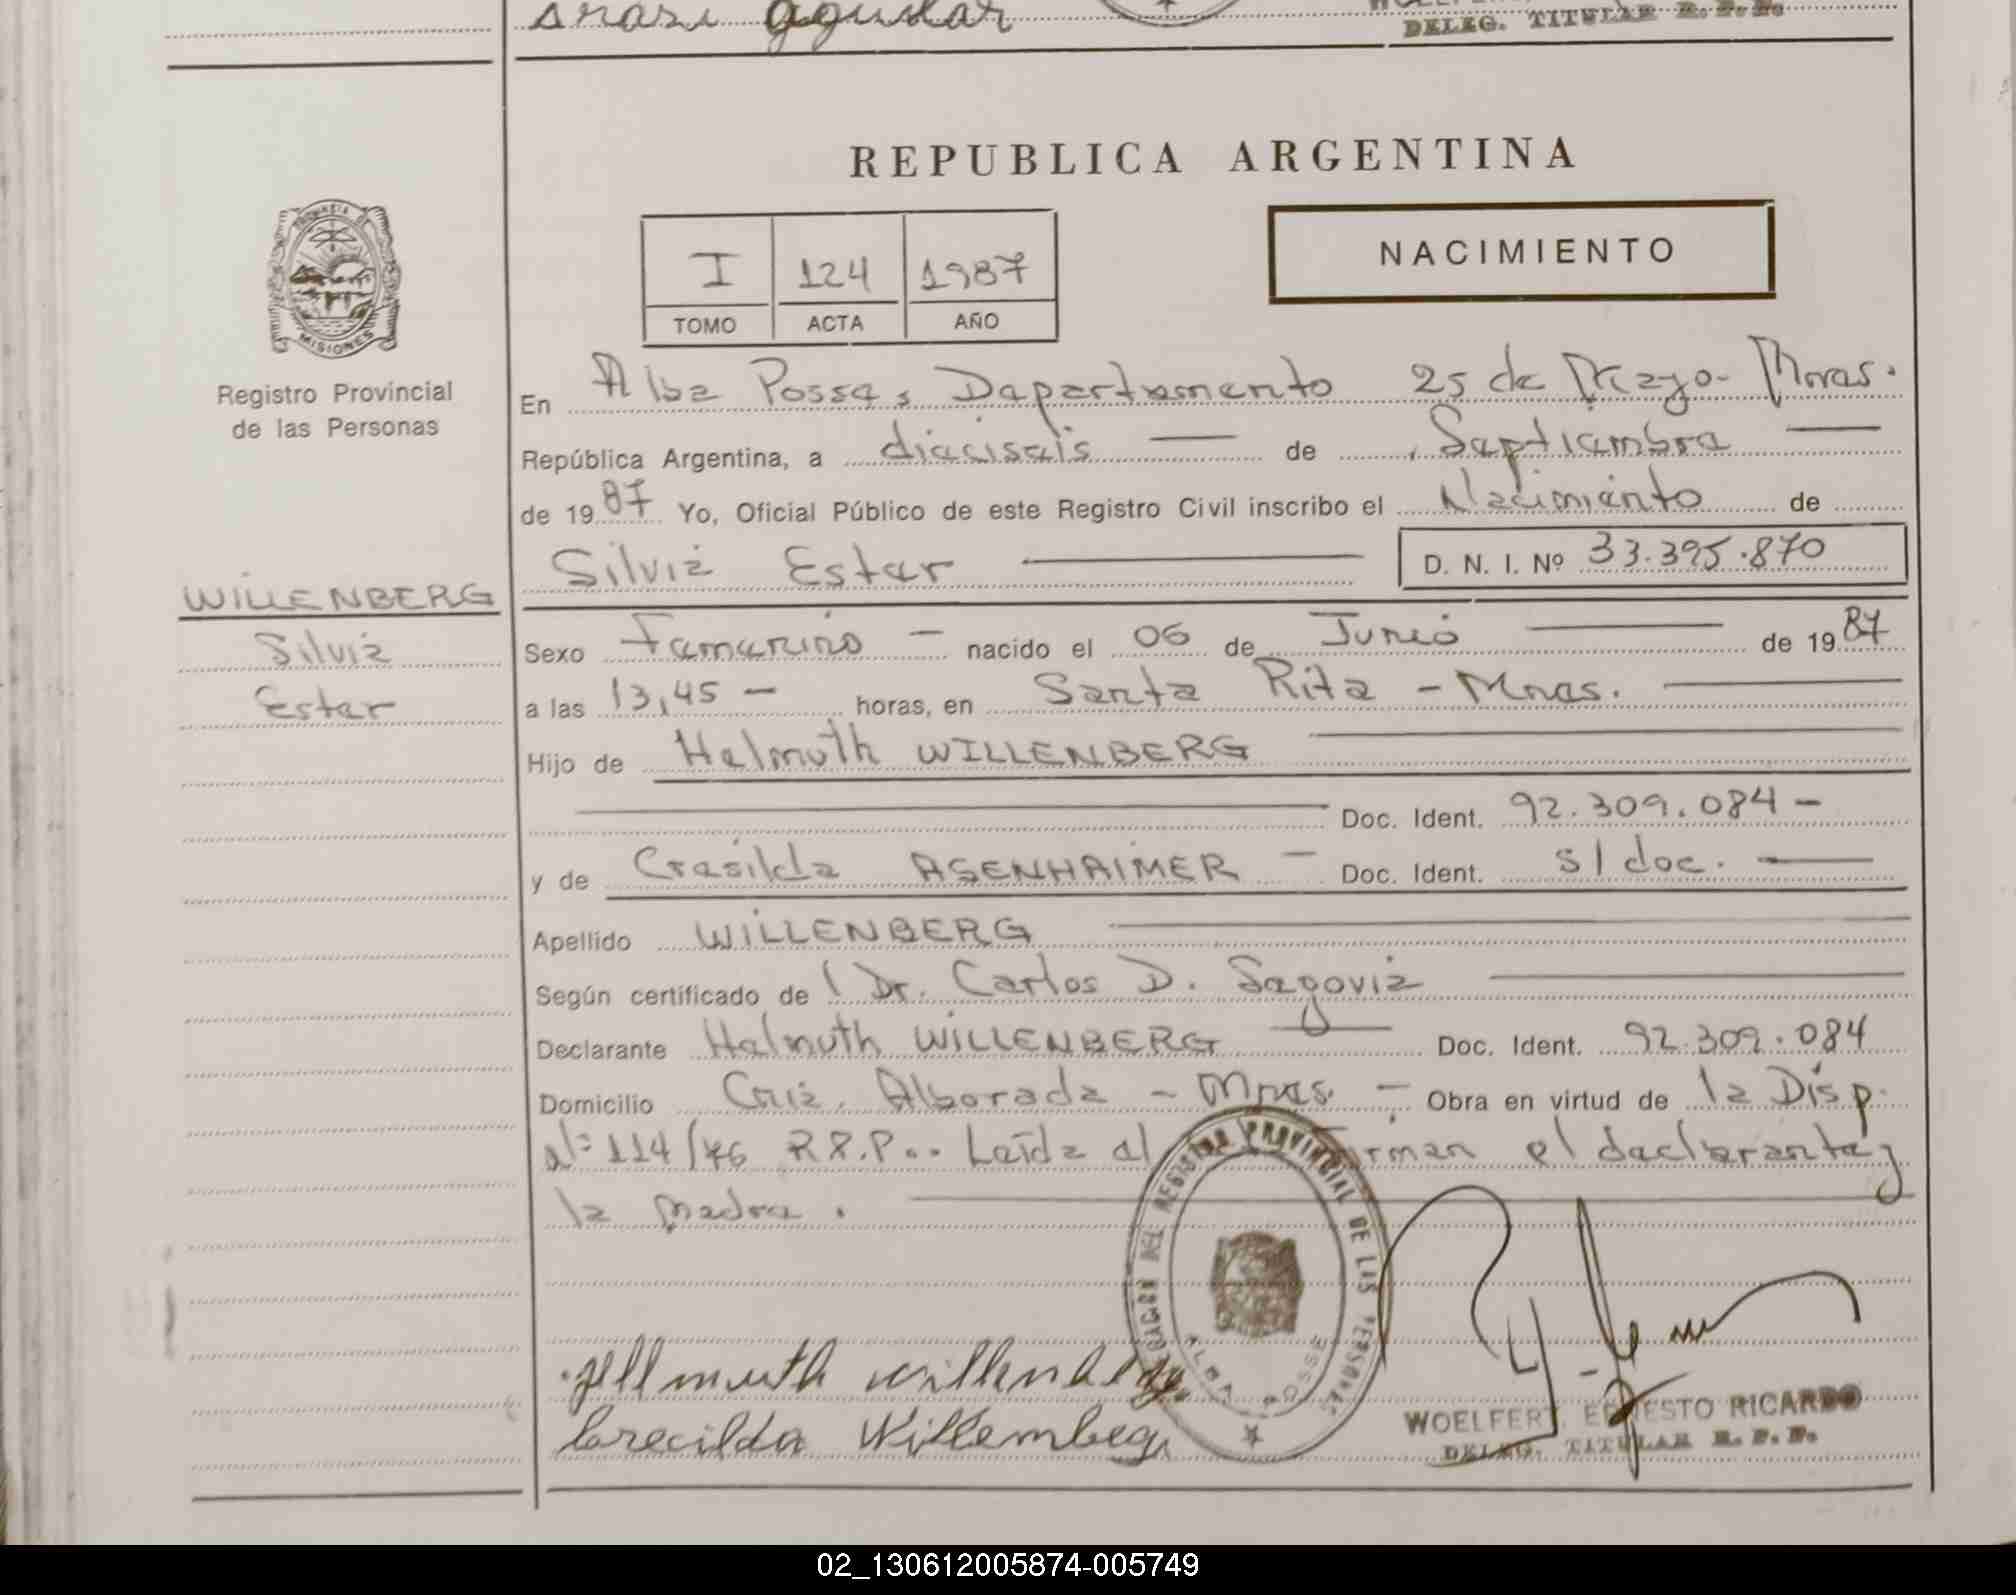 Srasi Aguilar
DELEG. TITULAR R. P. P.
REPUBLICA ARGENTINA
PROVINCIA DE
MISIONES
Registro Provincial
de las Personas
I 124 1987
TOMO ACTA AÑO
NACIMIENTO
En Alba Posse, Departamento 25 de Mayo - Mnas.
República Argentina, a dieciseis de Septiembre
de 1987 Yo, Oficial Público de este Registro Civil inscribo el Nacimiento de
Silvia Ester D. N. I. Nº 33.395.870
WILLENBERG
Silvia
Ester
Sexo Femenino - nacido el 06 de Junio de 1987
a las 13,45 - horas, en Santa Rita - Mnas.
Hijo de Helmuth WILLENBERG
Doc. Ident. 92.309.084 -
y de Cresilda ASENHAIMER - Doc. Ident. s/doc.
Apellido WILLENBERG
Según certificado de Dr. Carlos D. Segovia
Declarante Helmuth WILLENBERG Doc. Ident. 92.309.084
Domicilio Cnia. Alborada - Mnas. - Obra en virtud de la Disp.
Nº 114/76 R.P.P.. Leída el declarante y
la madre.
DEL REGISTRO PROVINCIAL DE LAS PERSONAS
ALBA POSSE
Hellmuth Willenberg
Crecilda Willemberg
WOELFERT, ERNESTO RICARDO
DELEG. TITULAR R. P. P.
02_130612005874-005749